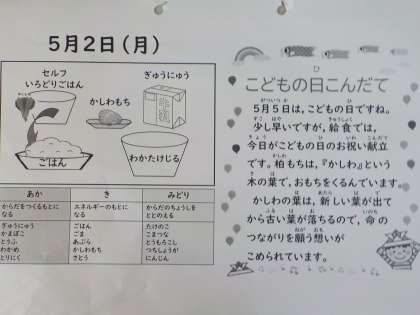 5月2日(月)
セルフ
いろどりごはん
ぎゅうにゅう
かしわもち
ごはん
わかたけじる
あか
き
みどり
からだをつくるもとに
なる
エネルギーのもとに
なる
からだのちょうしを
ととのえる
ぎゅうにゅう
かまぼこ
とうふ
わかめ
とりにく
ごはん
ごま
あぶら
かしわもち
さとう
たけのこ
こまつな
とうもろこし
つちしょうが
にんじん
こどもの日こんだて
5月5日は、こどもの日ですね。
少し早いですが、給食では、
今日がこどもの日のお祝い献立
です。柏もちは、『かしわ』という
木の葉で、おもちをくるんでいます。
かしわの葉は、新しい葉が出て
から古い葉が落ちるので、命の
つながりを願う想いが
こめられています。